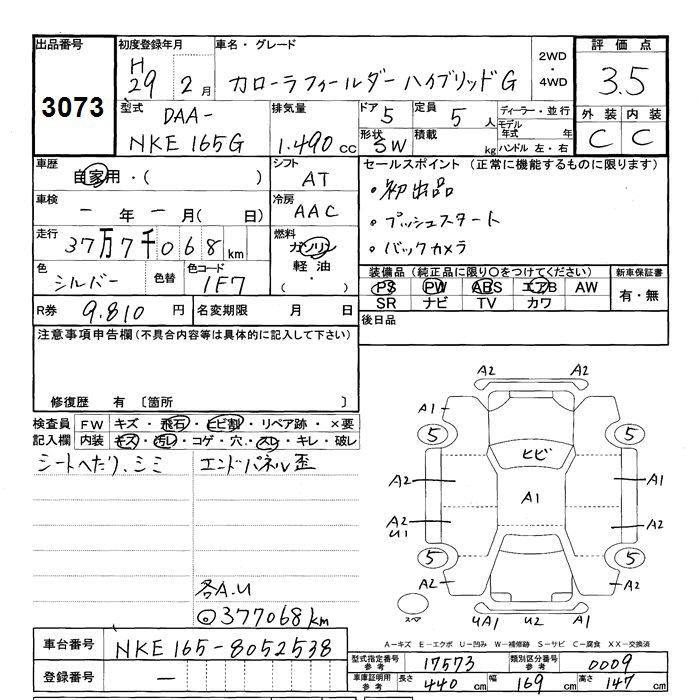 出品番号 初度登録年月 車名・グレード 2WD・4WD 評価点
3073 H29 2月 カローラフィールダー ハイブリッドG 3.5
型式 排気量 ドア 定員 ディーラー・並行 外装 内装
DAA-NKE165G 1.490cc 5 5人 モデル年式 年 C C
形状 積載 ハンドル 左・右
SW kg
車歴 シフト セールスポイント (正常に機能するものに限ります)
自家用・( ) AT ・初出品
車検 冷房 ・プッシュスタート
一年 一月( 日) AAC ・バックカメラ
走行 燃料
37万7千068km ガソリン
軽油
・( )
色 色替 色コード 装備品(純正品に限り○をつけてください) 新車保証書
シルバー 1F7 PS PW ABS エアB AW 有・無
SR ナビ TV カワ
R券 9.810円 名変期限 月 日 後日品
注意事項申告欄(不具合内容等は具体的に記入して下さい)
修復歴 有 〔箇所 〕
検査員記入欄 FW キズ・飛石・ヒビ割・リペア跡・×要
内装 キズ・汚レ・コゲ・穴・スレ・キレ・破レ
シートへたり、シミ エンドパネル歪
各A.U
◎377068km
A2 A2
A1 A1
5 5
ヒビ
A2 A1 A1
A2 U1 A2
5 5
A2 A2
スペ UA1 U2 A1
A=キズ E=エクボ U=凹み W=補修跡 S=サビ C=腐食 XX=交換済
車台番号 NKE165-8052538
登録番号 ー
型式指定番号 参考 17573 類別区分番号 参考 0009
車庫証明用 参考 長さ 440cm 幅 169cm 高さ 147cm